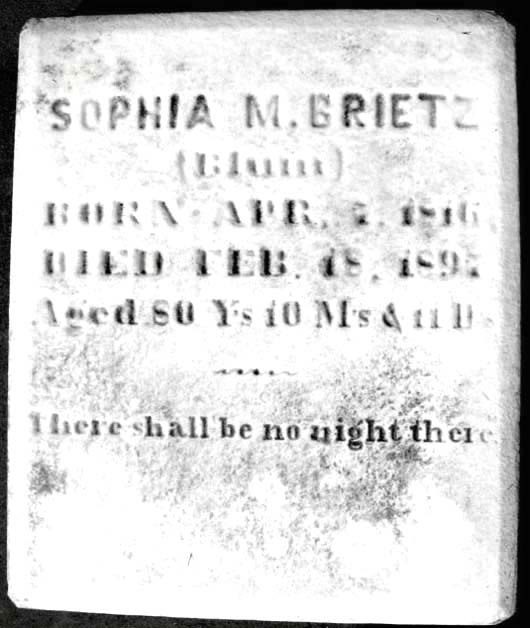 SOPHIA M. BRIETZ
(Blum)
BORN APR. 7, 1816,
DIED FEB. 18, 1897
Aged 80 Y's 10 M's & 11 D's
There shall be no night there.